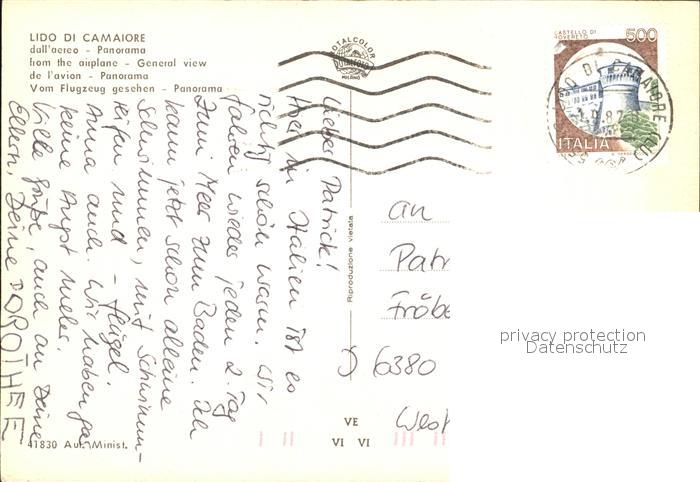 LIDO DI CAMAIORE
dall'aereo - Panorama
from the airplane - General view
de l'avion - Panorama
Vom Flugzeug gesehen - Panorama
ROTALCOLOR
ROTALFOTO
MILANO
CASTELLO DI
ROVERETO
500
ITALIA
LIDO DI CAMAIORE (LU)
Lieber Patrick!
Hier in Italien ist es
richtig schön warm. Wir
fahren wieder jeden 2. Tag
zum Meer zum Baden. Ich
kann jetzt schon alleine
Schwimmen, mit Schwimm-
reifen und - flügel.
Anna auch. Wir haben gar
keine Angst mehr.
Viele Grüße, auch an Deine
Eltern, Deine DOROTHEE
Riproduzione vietata
An
Patr
Fröbe
D 6380
West
privacy protection
Datenschutz
VE
VI VI
41830 Aut. Minist.